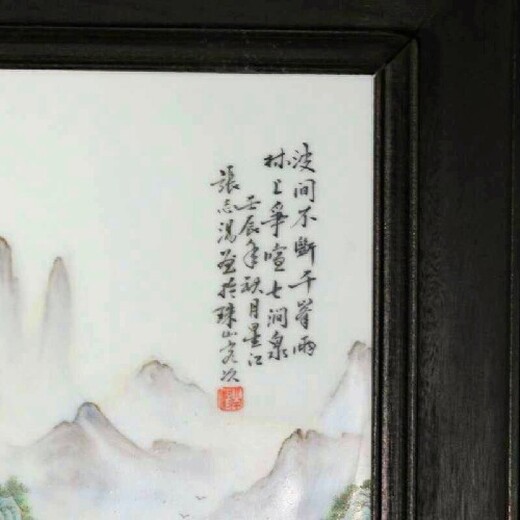 波间不断千峯雨
林上争喧七涧泉
壬辰年秋月星江
張志湯画於珠山客次